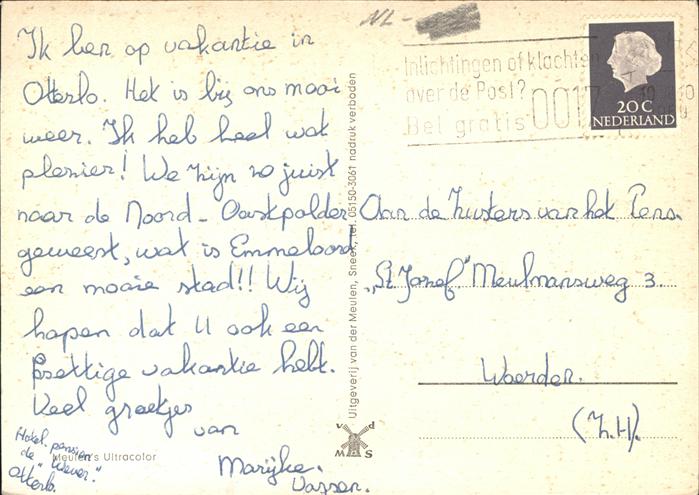 Ik ben op vakantie in
Otterlo. Het is bij ons mooi
weer. Ik heb heel wat
plezier! We zijn zo juist
naar de Noord-Oostpolder
geweest, wat is Emmeloord
een mooie stad!! Wij
hopen dat U ook een
Prettige vakantie hebt.
Veel groetjes
van
Marijke.
Vassen.
Hotel, pension
de "Wever".
Otterlo.
Meulen's Ultracolor
Uitgeverij van der Meulen, Sneek, tel. 05150-3061 nadruk verboden
NL-
Inlichtingen of klachten
over de Post?
Bel gratis 0017
20 C
NEDERLAND
Aan de Zusters van het Pens.
"St Jozef" Meulmansweg 3.
Woerden.
(Z.H).
v d
M S